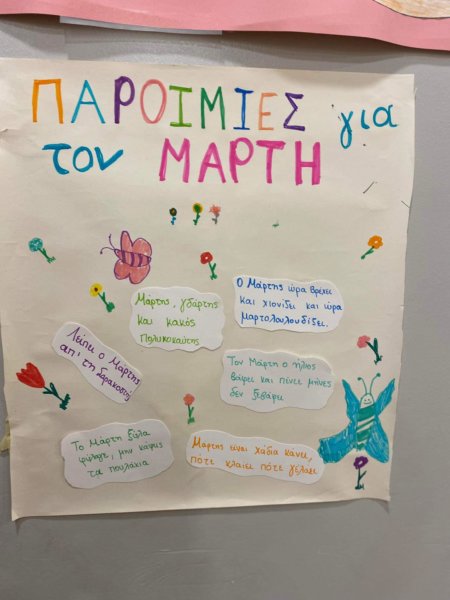 ΠΑΡΟΙΜΙΕΣ για
τον ΜΑΡΤΗ
Μάρτης, γδάρτης
και κακός
παλουκοκαύτης
Ο Μάρτης ώρα βρέχει
και χιονίζει και ώρα
μαρτολουλουδίζει.
Λείπει ο Μάρτης
απ' τη Σαρακοστή
Τον Μάρτη ο ήλιος
βάφει και πέντε μήνες
δεν ξεβάφει
Το Μάρτη ξύλα
φύλαγε, μην κάψεις
τα παλούκια
Μάρτης είναι χάδια κάνει,
πότε κλαίει πότε γελάει